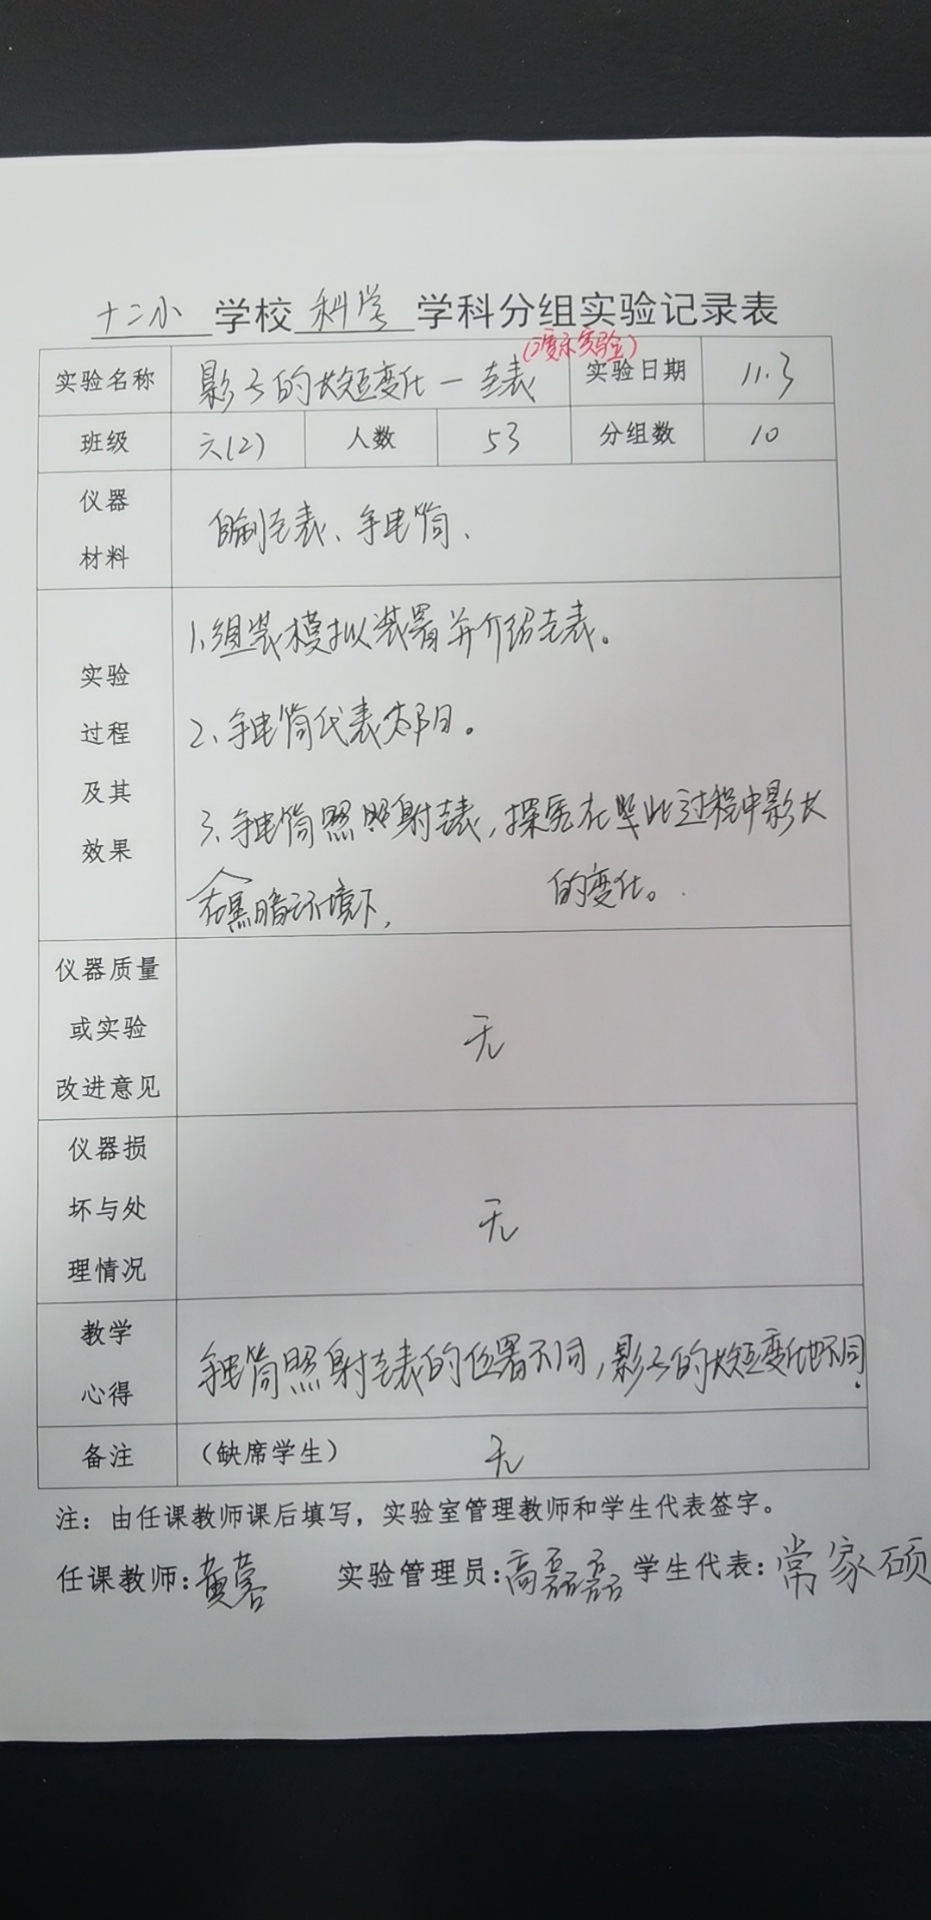 十二小 学校 科学 学科分组实验记录表
(演示实验)
实验名称 影子的长短变化一圭表 实验日期 11.3
班级 六(2) 人数 53 分组数 10
仪器
材料
自制圭表、手电筒、
实验
过程
及其
效果
1、组装模拟装置并介绍圭表。
2、手电筒代表太阳。
3、手电筒照照射圭表,探究在 此过程中影长
在黑暗环境下, 的变化。
仪器质量
或实验
改进意见
无
仪器损
坏与处
理情况
无
教学
心得
手电筒照射圭表的位置不同,影子的长短变化也不同.
备注 (缺席学生) 无
注:由任课教师课后填写,实验室管理教师和学生代表签字。
任课教师:黄蓉 实验管理员:高磊磊 学生代表:常家硕